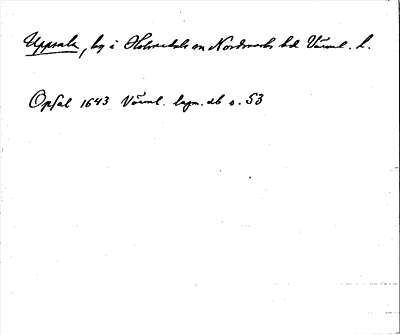 Uppsala, by i Holmedals sn Nordmarks hd Värml. l.
Opsal 1643 Värml. lagm. db s. 53